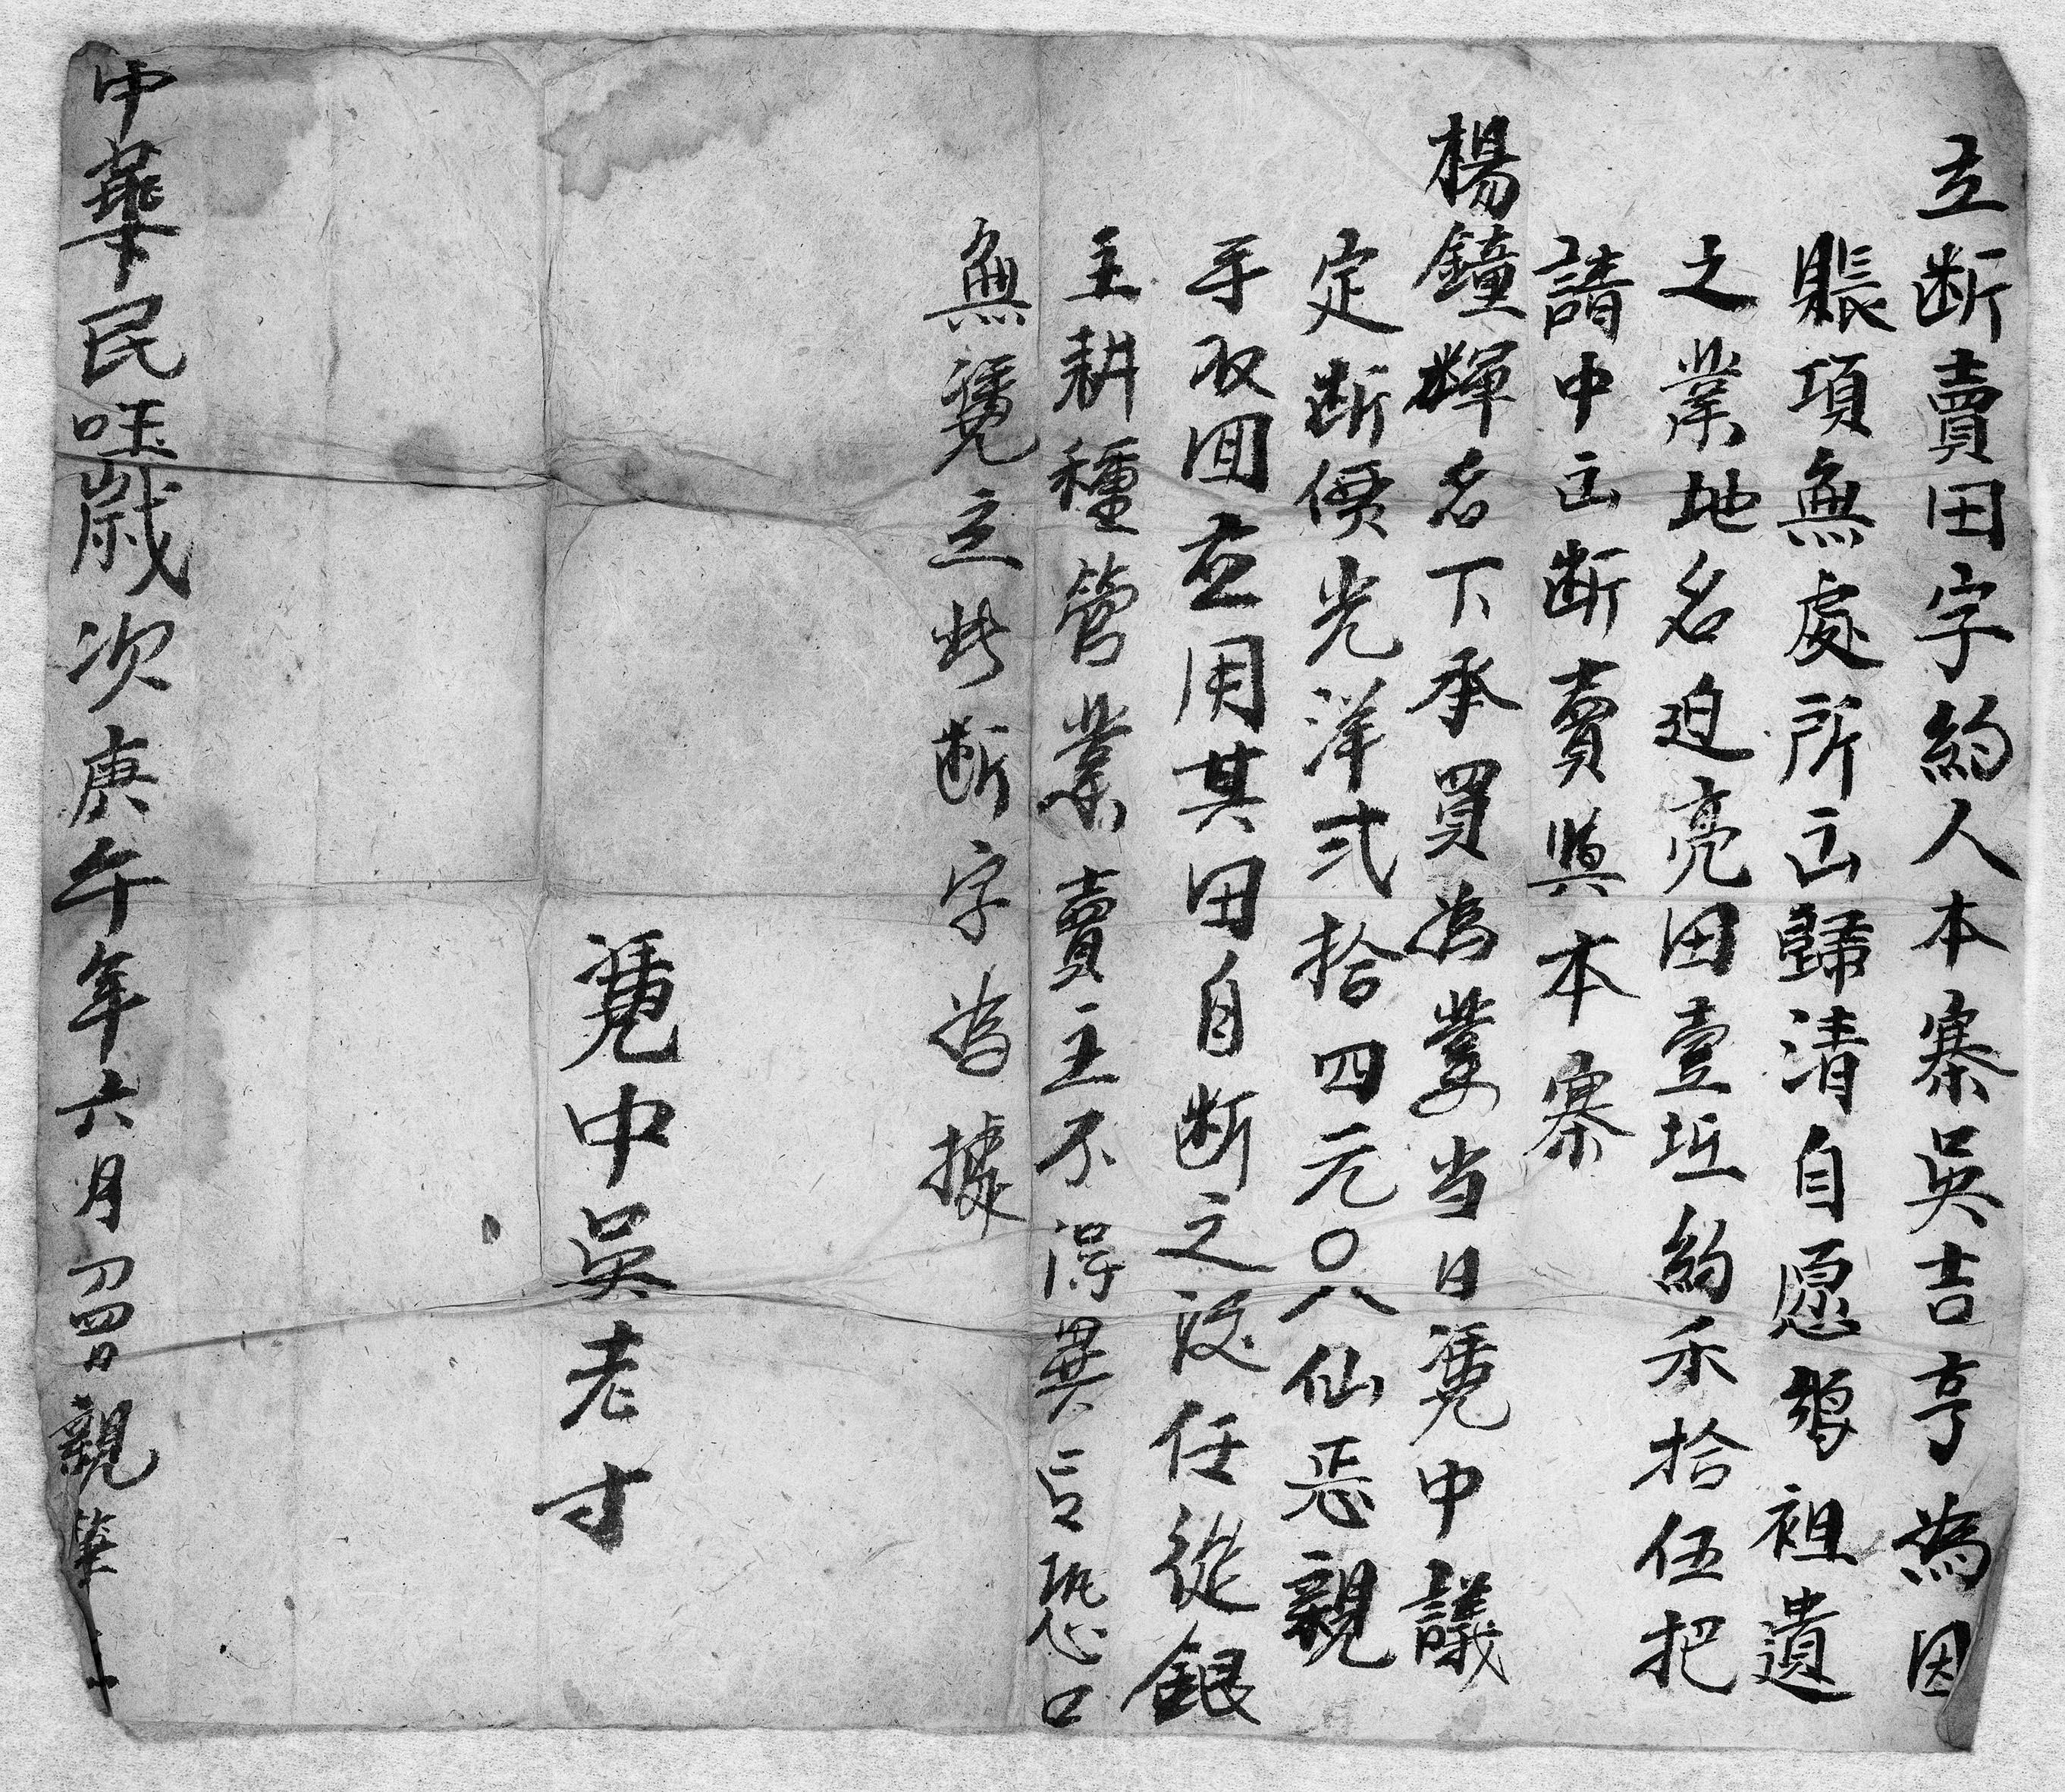 立断賣田字約人本寨吳吉亨為因
賬項無處所出歸清自愿将祖遺
之業地名迫亮田壹坵約禾拾伍把
請中出断賣與本寨
楊鐘輝名下承買為業当日凴中議
定断價光洋弍拾四元〇八仙恁親
手收回应用其田自断之後任從銀
主耕種管業賣主不得異言恐口
無凴立此断字為據
凴中吳老寸
中華民国歲次庚午年六月初四日親筆